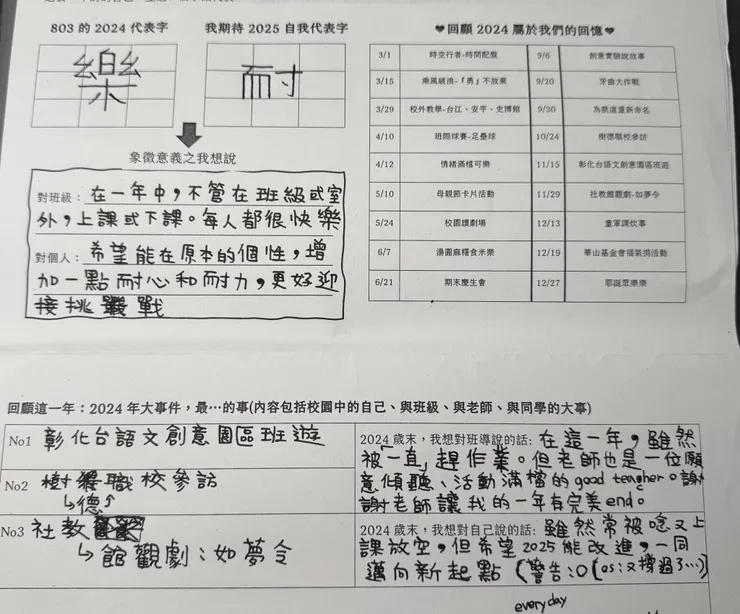 803 的 2024 代表字
樂
我期待 2025 自我代表字
耐
象徵意義之我想說
對班級：在一年中，不管在班級或室
外，上課或下課。每人都很快樂
對個人：希望能在原本的個性，增
加一點耐心和耐力，更好迎
接挑戰
❤回顧 2024 屬於我們的回憶❤
3/1 時空行者-時間配盤 9/6 創意實驗說故事
3/15 乘風破浪-「勇」不放棄 9/20 牙齒大作戰
3/29 校外教學-台江、安平、史博館 9/30 為凱道重新命名
4/10 班際球賽-足壘球 10/24 樹德職校參訪
4/12 情緒滿檔可樂 11/15 彰化台語文創意園區班遊
5/10 母親節卡片活動 11/29 社教館觀劇-如夢令
5/24 校園讀劇場 12/13 童軍課炊事
6/7 湯圓麻糬食米樂 12/19 華山基金會福氣捐活動
6/21 期末慶生會 12/27 耶誕眾樂樂
回顧這一年：2024 年大事件，最…的事(內容包括校園中的自己、與班級、與老師、與同學的大事)
No1 彰化台語文創意園區班遊
No2 樹職校參訪
↳德↗
No3 社教
↳館觀劇：如夢令
2024 歲末，我想對班導說的話：在這一年，雖然
被「一直」趕作業。但老師也是一位願
意傾聽、活動滿檔的good teacher。謝
謝老師讓我的一年有完美end。
2024 歲末，我想對自己說的話：雖然常被唸又上
課放空，但希望2025能改進，一同
邁向新起點（警告:O(os:又撐過了…)
everyday